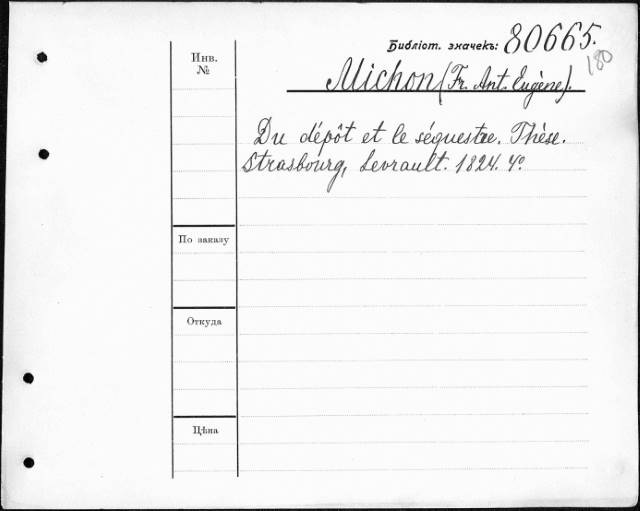 Библіот. значекъ: 80665.
180
Инв.
№
Michon (Fr. Ant. Eugène).
Du dépôt et le séquestre. Thèse.
Strasbourg, Levrault. 1824. 4º
По заказу
Откуда
Цѣна